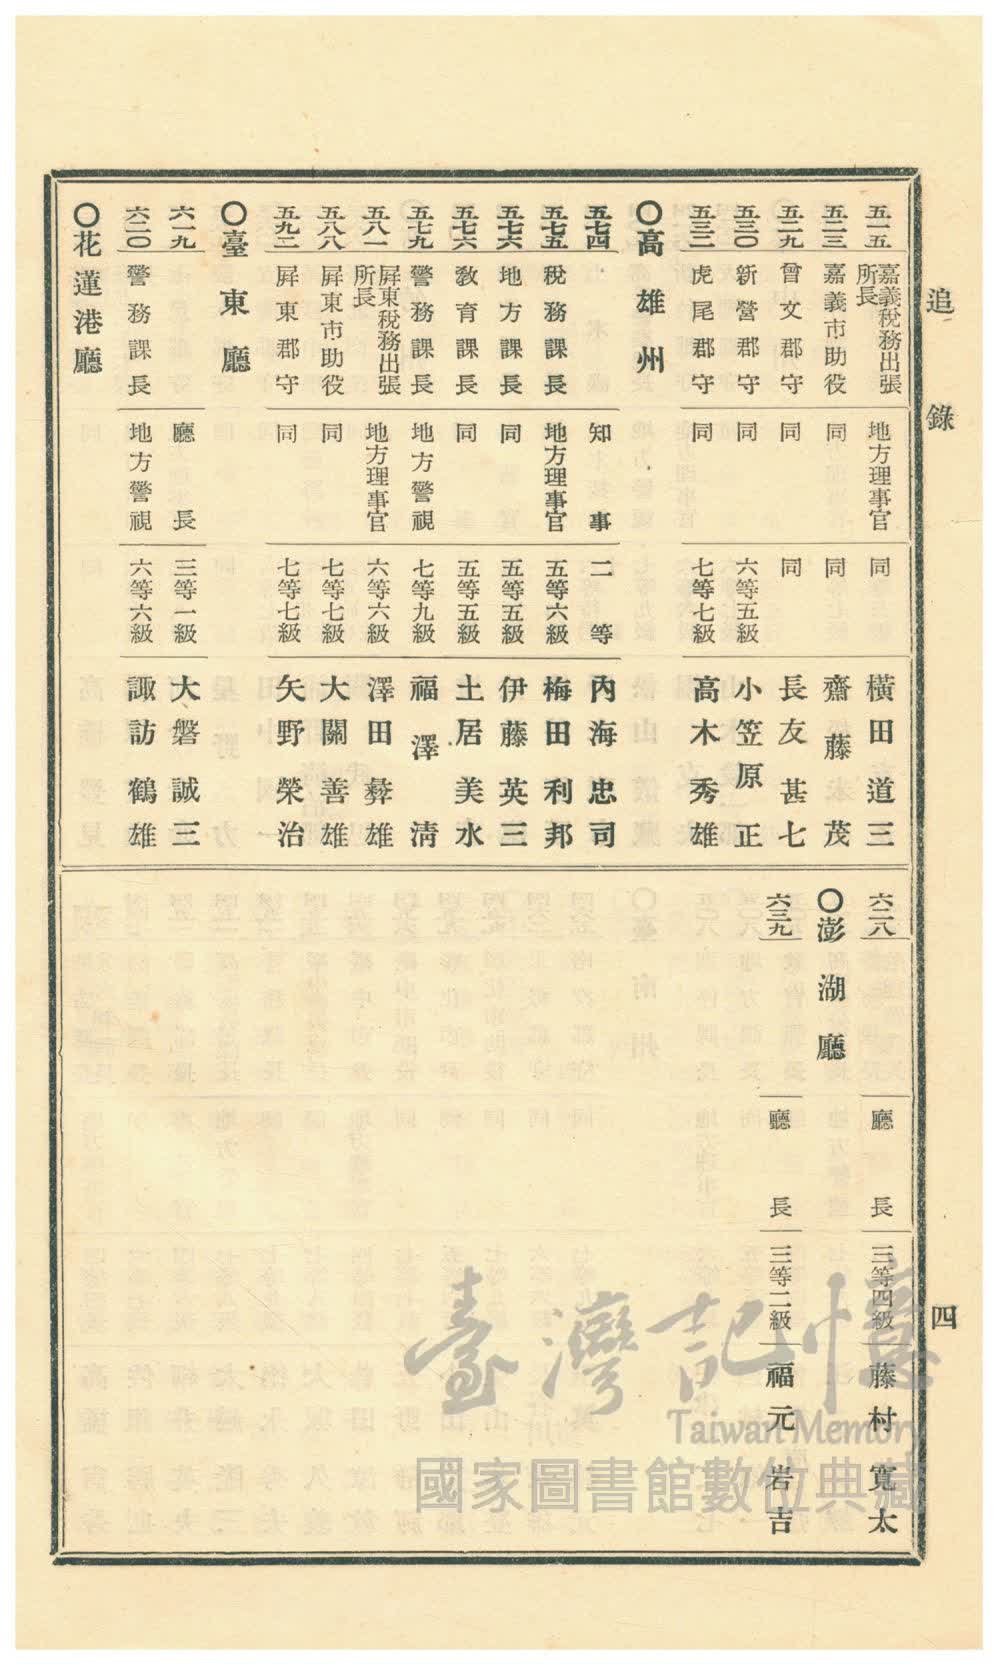 追錄
四
五一五 嘉義稅務出張所長 地方理事官 同 横田道三
五二三 嘉義市助役 同 同 齋藤茂
五二九 曾文郡守 同 同 長友甚七
五三〇 新營郡守 同 六等五級 小笠原正
五三二 虎尾郡守 同 七等七級 高木秀雄
〇高雄州
五七四 知事 二等 內海忠司
五七五 稅務課長 地方理事官 五等六級 梅田利邦
五七六 地方課長 同 五等五級 伊藤英三
五七六 敎育課長 同 五等五級 土居美水
五七九 警務課長 地方警視 七等九級 福澤清
五八一 屛東稅務出張所長 地方理事官 六等六級 澤田彜雄
五八八 屛東市助役 同 七等七級 大關善雄
五九二 屛東郡守 同 七等七級 矢野榮治
〇臺東廳
六一九 廳長 三等一級 大磐誠三
六二〇 警務課長 地方警視 六等六級 諏訪鶴雄
〇花蓮港廳
六二八 廳長 三等四級 藤村寬太
〇澎湖廳
六三九 廳長 三等二級 福元岩吉
臺灣記憶
Taiwan Memory
國家圖書館數位典藏